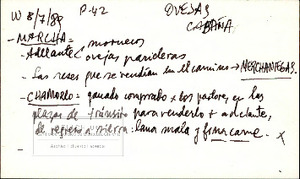 W 8/7/89 P-42 OVEJAS
CABAÑA
- MARCHA = moruecos
- Adelante ovejas parideras
- Las reses que se vendían en el camino → MERCHANIEGAS.
- CHAMORRO = ganado comprado x los pastores en las
plazas de tránsito para venderlo + adelante,
de regreso a sierra: lana mala y fina carne. x